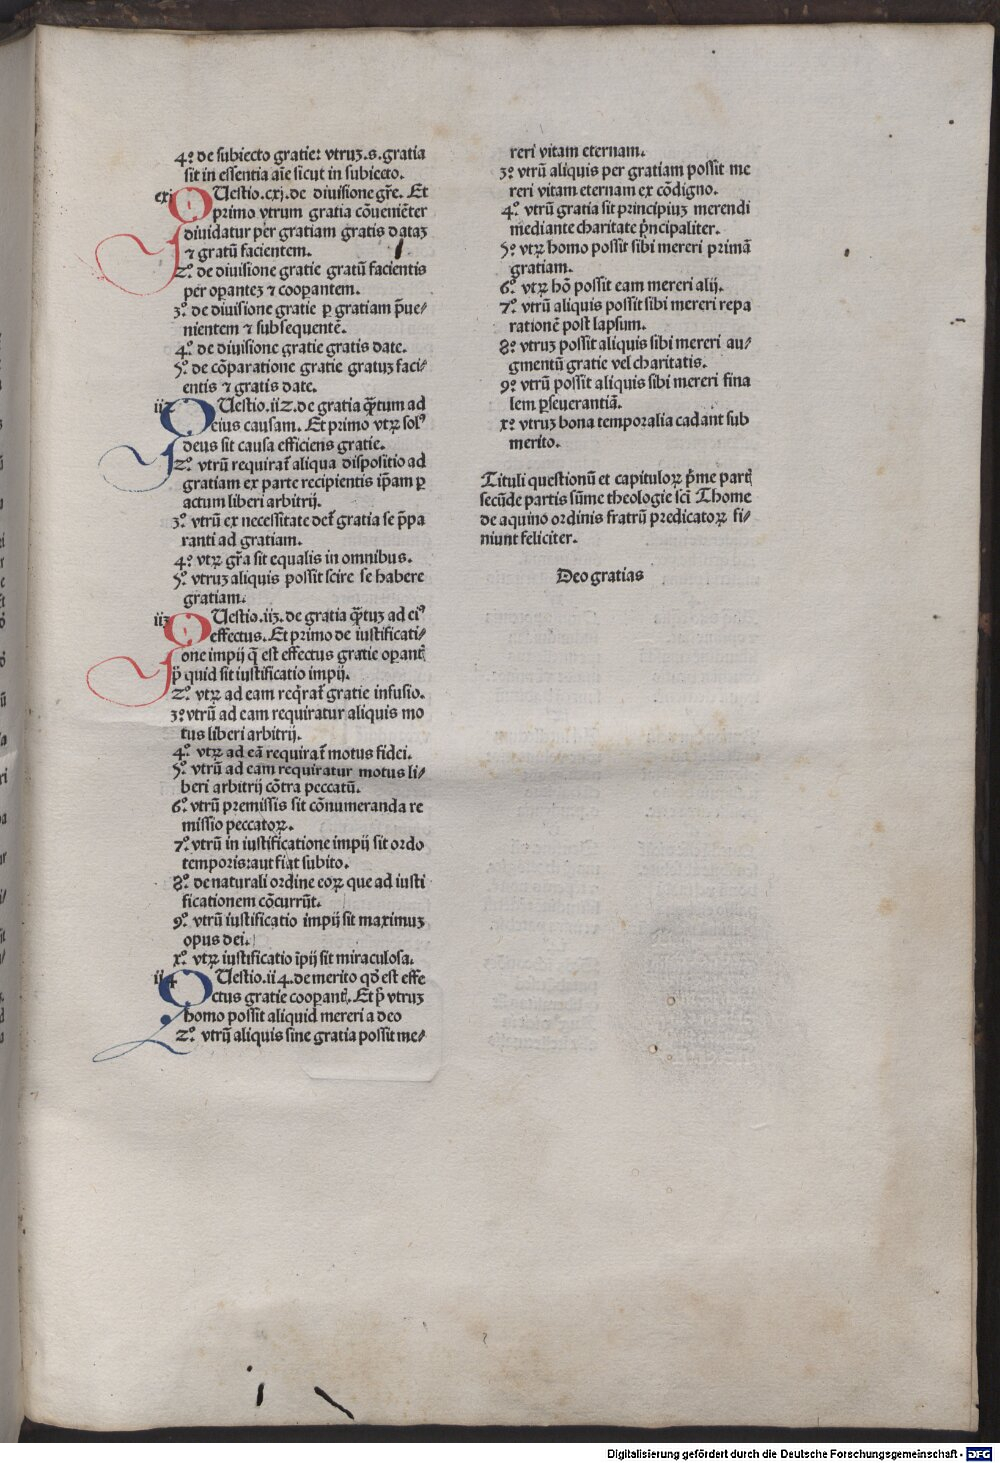 4º de subiecto gratie: vtruȝ.s.gratia
sit in essentia aīe sicut in subiecto.
cxi QUestio.cxi.de diuisione gr̄e. Et
primo vtrum gratia cōueniēter
diuidatur per gratiam gratis dataȝ
⁊ gratū facientem.
2º de diuisione gratie gratū facientis
per oꝑanteȝ ⁊ cooꝑantem.
3º de diuisione gratie ꝑ gratiam p̄ue/
nientem ⁊ subsequentē.
4º de diuisione gratie gratis date.
5º de cōparatione gratie gratuȝ faci/
entis ⁊ gratis date.
ii2 QUestio.ii2.de gratia q̄ꝫtum ad
eius causam. Et primo vtꝝ solꝰ
deus sit causa efficiens gratie.
2º vtrū requirat̄ aliqua dispositio ad
gratiam ex parte recipientis ip̄am ꝑ
actum liberi arbitrij.
3º vtrū ex necessitate det̄ gratia se p̄pa
ranti ad gratiam.
4º vtꝝ gr̄a sit equalis in omnibus.
5º vtruȝ aliquis possit scire se habere
gratiam.
ii3 QUestio.ii3.de gratia q̄ꝫtuȝ ad eiꝰ
effectus. Et primo de iustificati/
one impij q̄ est effectus gratie oꝑantꝭ
p̄ quid sit iustificatio impij.
2º vtꝝ ad eam req̄rat̄ gratie infusio.
3º vtrū ad eam requiratur aliquis mo
tus liberi arbitrij.
4º vtꝝ ad eā requirat̄ motus fidei.
5º vtrū ad eam requiratur motus li/
beri arbitrij cōtra peccatū.
6º vtrū premissis sit cōnumeranda re
missio peccatoꝝ.
7º vtrū in iustificatione impij sit ordo
temporis:aut fiat subito.
8º de naturali ordine eoꝝ que ad iusti
ficationem cōcurrūt.
9º vtrū iustificatio impij sit maximuȝ
opus dei.
xº vtꝝ iustificatio īpij sit miraculosa.
ii4 QUestio.ii4.de merito qd̄ est effe
ctus gratie cooꝑantꝭ. Et p̄ vtruȝ
homo possit aliquid mereri a deo
2º vtrū aliquis sine gratia possit me/
reri vitam eternam.
3º vtrū aliquis per gratiam possit me
reri vitam eternam ex cōdigno.
4º vtrū gratia sit principiuȝ merendi
mediante charitate p̄ncipaliter.
5º vtꝝ homo possit sibi mereri primā
gratiam.
6º vtꝝ hō possit eam mereri alij.
7º vtrū aliquis possit sibi mereri repa
rationē post lapsum.
8º vtruȝ possit aliquis sibi mereri au/
gmentū gratie vel charitatis.
9º vtrū possit aliquis sibi mereri fina
lem ꝑseuerantiā.
xº vtruȝ bona temporalia cadant sub
merito.
Tituli questionū et capituloꝝ p̄me partꝭ
secūde partis sūme theologie sc̄i Thome
de aquino ordinis fratrū predicatoꝝ fi/
niunt feliciter.
Deo gratias
Digitalisierung gefördert durch die Deutsche Forschungsgemeinschaft - DFG